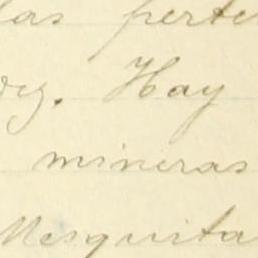 las perte
. Hay
mineras
Mesquita